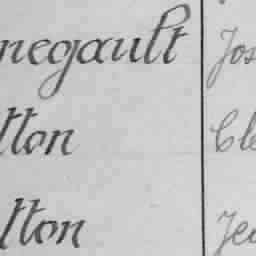 negault Jos
tton Cle
tton Jea